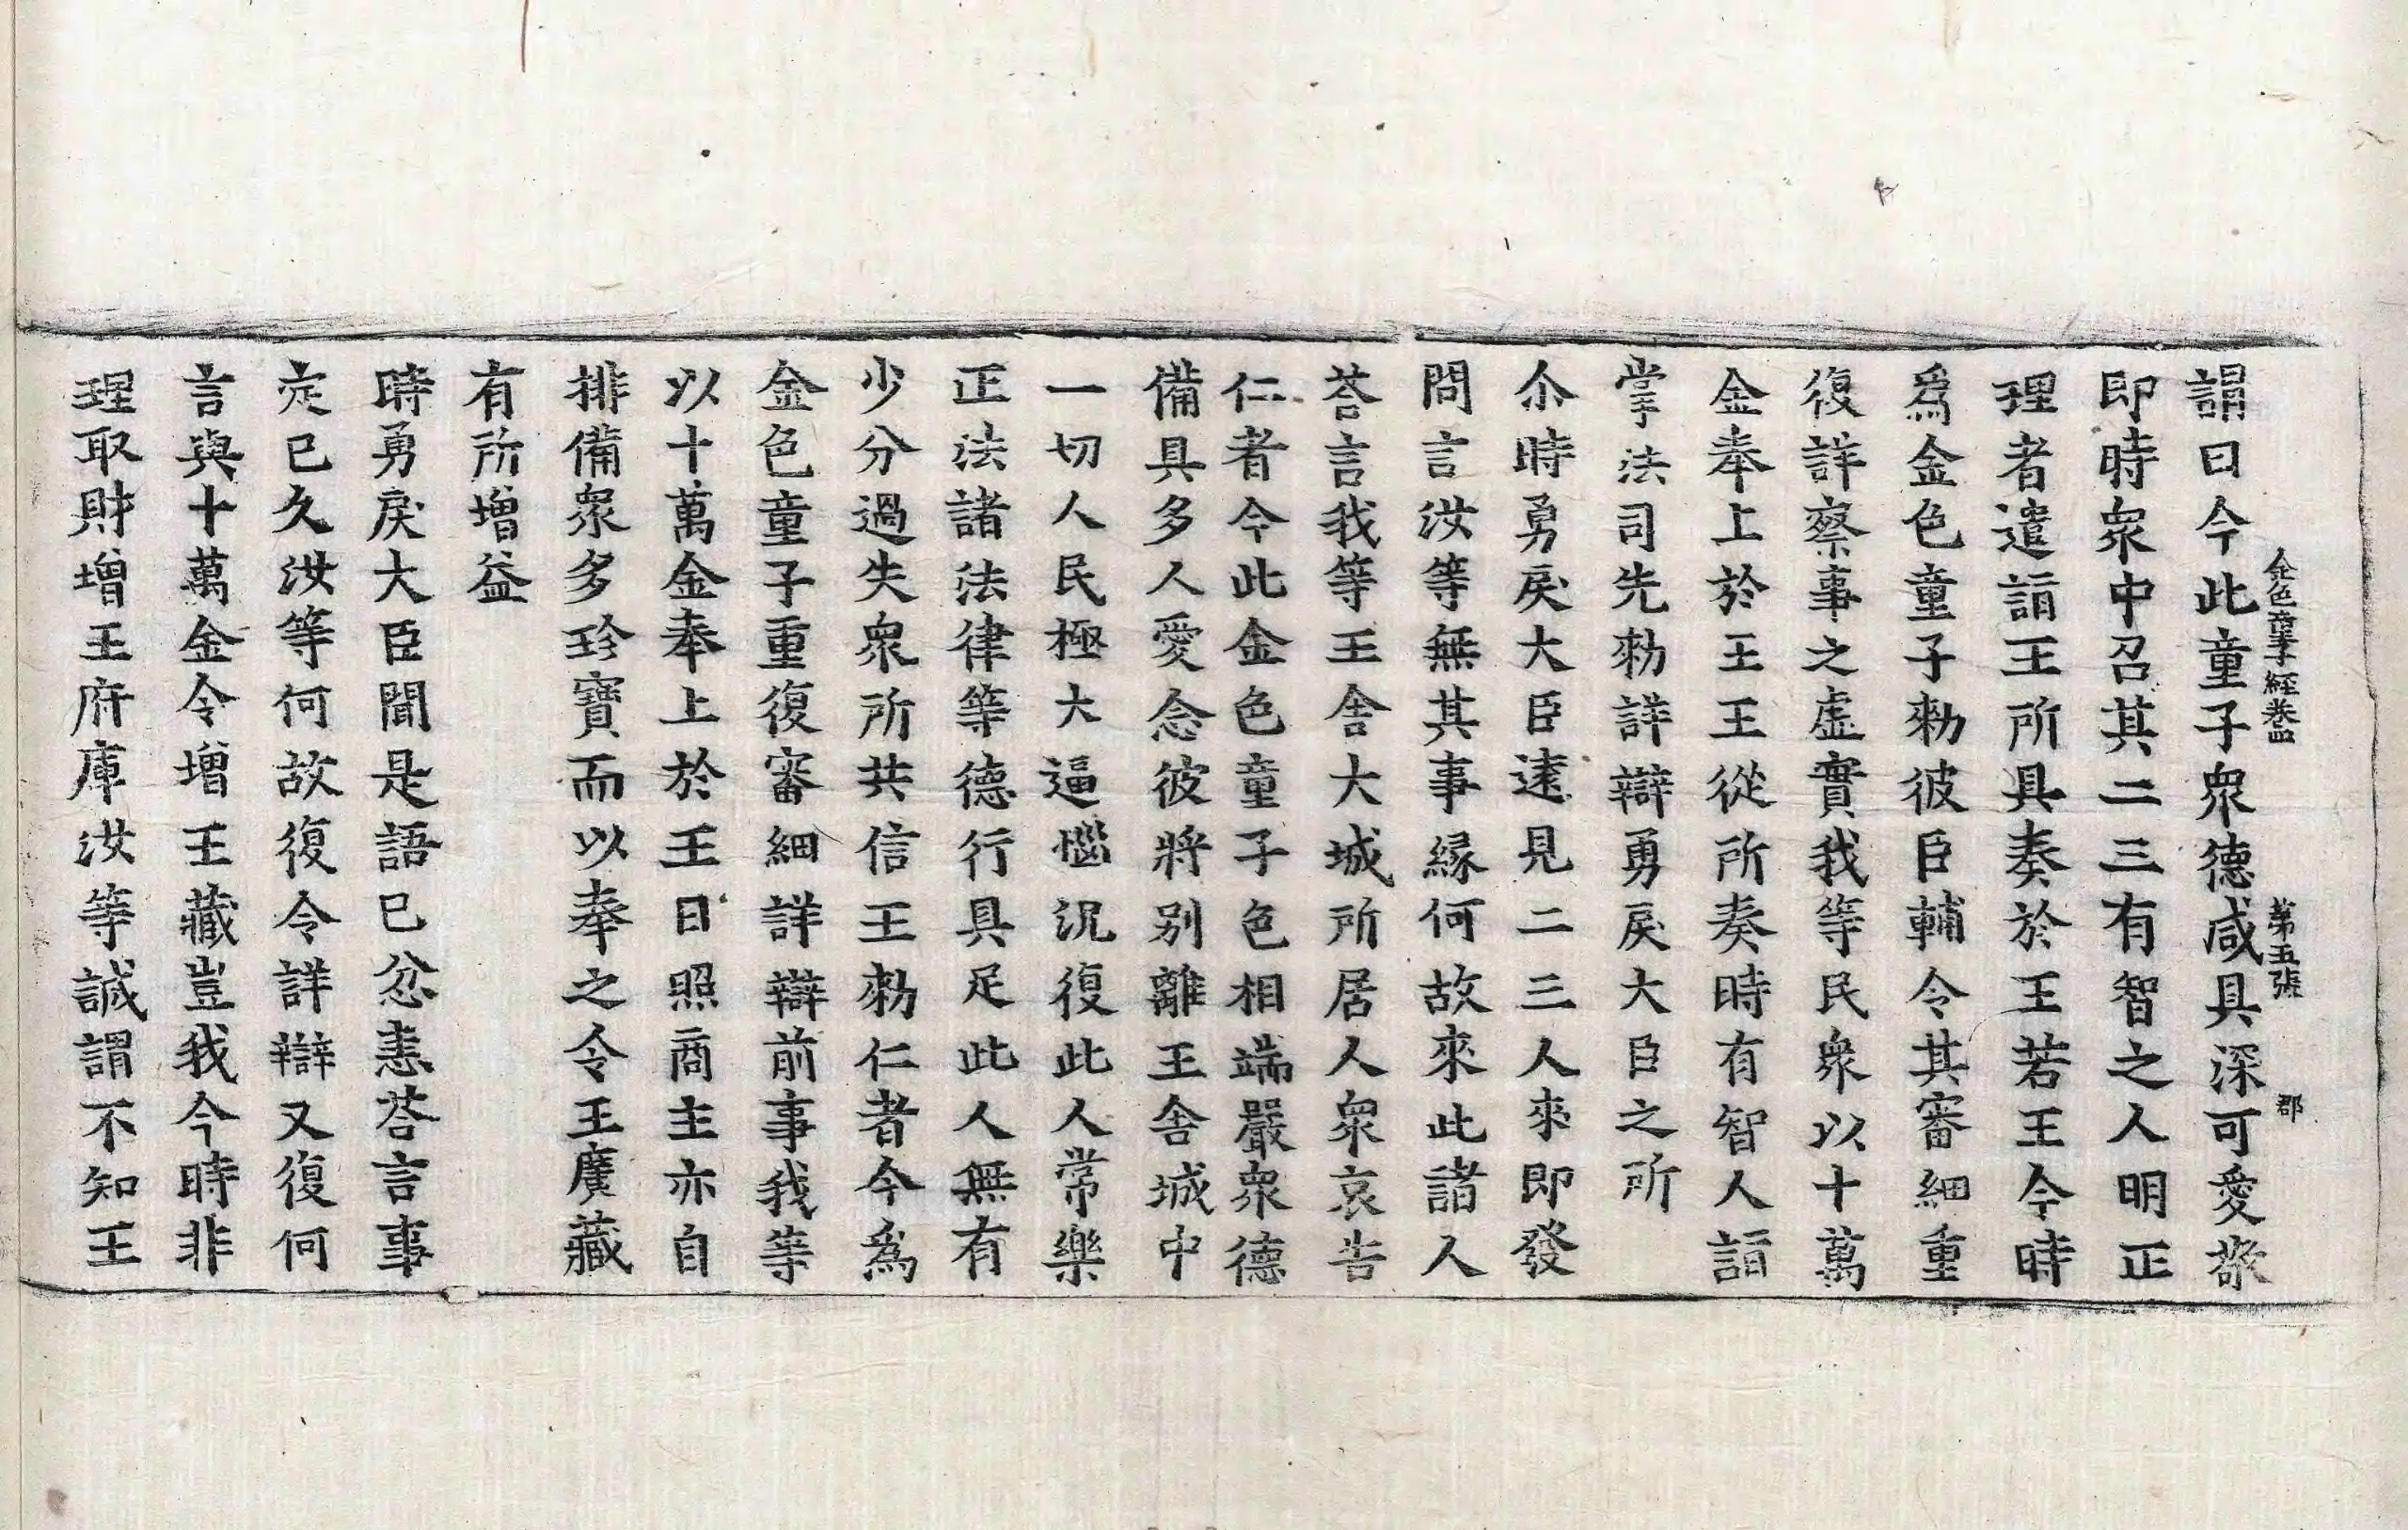 金色童子經卷四　第五張　郡
謂曰今此童子衆德咸具深可愛敬
即時衆中召其二三有智之人明正
理者遣詣王所具奏於王若王今時
爲金色童子勑彼臣輔令其審細重
復詳察事之虛實我等民衆以十萬
金奉上於王王從所奏時有智人詣
掌法司先勑詳辯勇戾大臣之所
尒時勇戾大臣遠見二三人來即發
問言汝等無其事緣何故來此諸人
荅言我等王舍大城所居人衆哀告
仁者今此金色童子色相端嚴衆德
備具多人愛念彼將別離王舍城中
一切人民極大逼惱況復此人常樂
正法諸法律等德行具足此人無有
少分過失衆所共信王勑仁者今爲
金色童子重復審細詳辯前事我等
以十萬金奉上於王日照商主亦自
排備衆多珍寶而以奉之令王廣藏
有所增益
時勇戾大臣聞是語已忿恚荅言事
㝎已久汝等何故復令詳辯又復何
言與十萬金令增王藏豈我今時非
理取財增王府庫汝等誠謂不知王